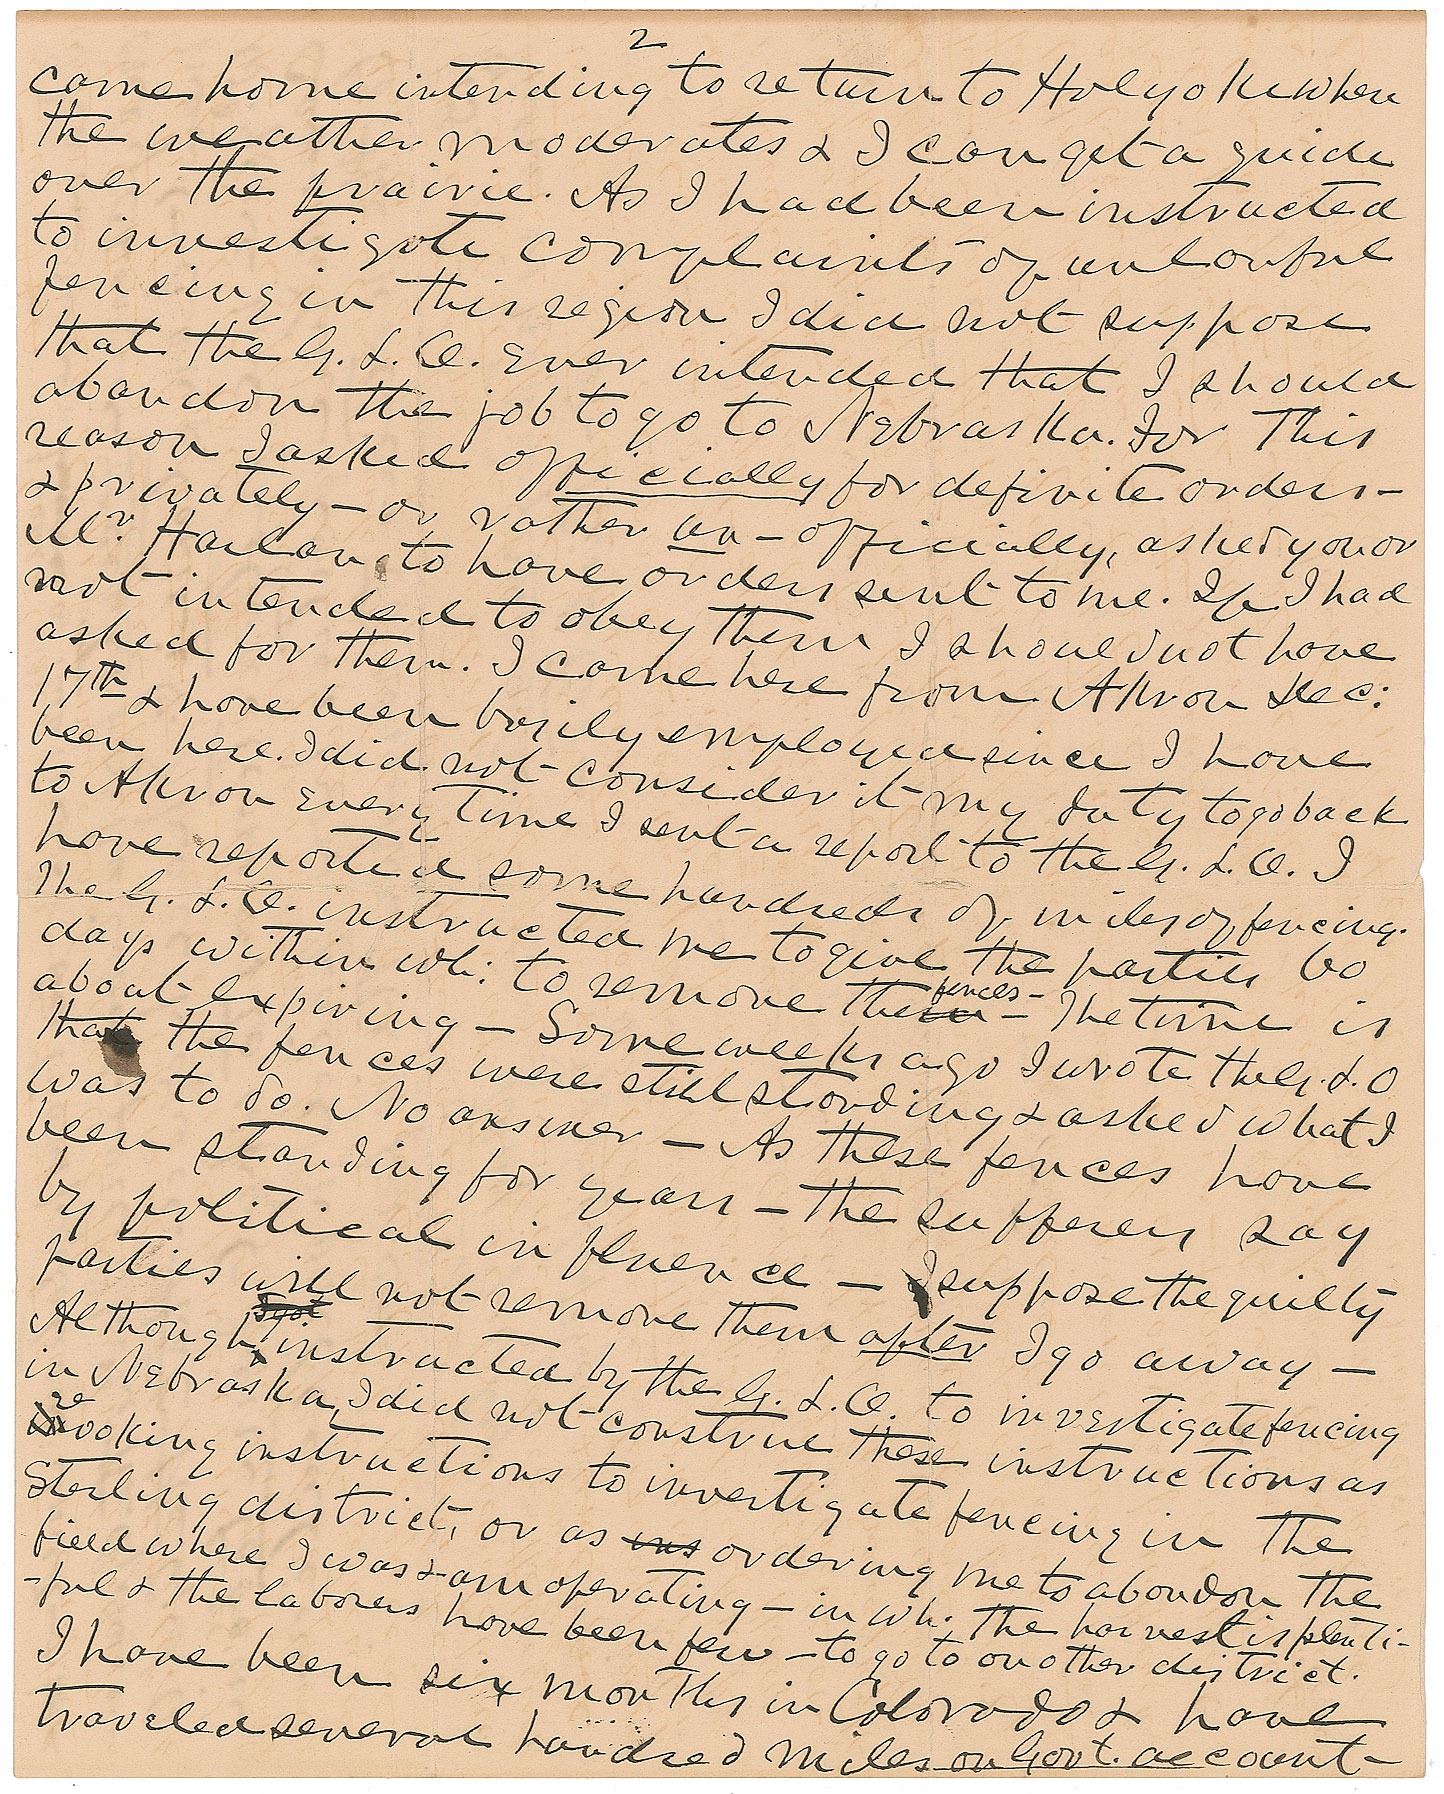 2
came home intending to return to Holyoke when
the weather moderates & I can get a guide
over the prairie. As I had been instructed
to investigate complaints of unlawful
fencing in this region I did not suppose
that the G. L. O. ever intended that I should
abandon the job to go to Nebraska. For this
reason I asked officially for definite orders—
& privately — or rather un-officially, asked you or
Mr. Harlan, to have orders sent to me. If I had
not intended to obey them I should not have
asked for them. I came here from Akron Dec:
17th & have been busily employed since I have
been here. I did not consider it my duty to go back
to Akron every time I sent a report to the G. L. O. I
have reported some hundreds of miles of fencing.
The G. L. O. instructed me to give the parties 60
days within wh: to remove the fences — The time is
about expiring — Some weeks ago I wrote the G. L. O
that the fences were still standing & asked what I
was to do. No answer — As these fences have
been standing for years — the sufferers say
by political influence — I suppose the guilty
parties will not remove them after I go away —
Although instructed by the G. L. O. to investigate fencing
in Nebraska, I did not construe these instructions as
revoking instructions to investigate fencing in the
Sterling district, or as ins ordering me to abandon the
field where I was & am operating — in wh. the harvest is plenti-
-ful & the laborers have been few — to go to another district.
I have been six months in Colorado & have
traveled several hundred miles on Govt. account—